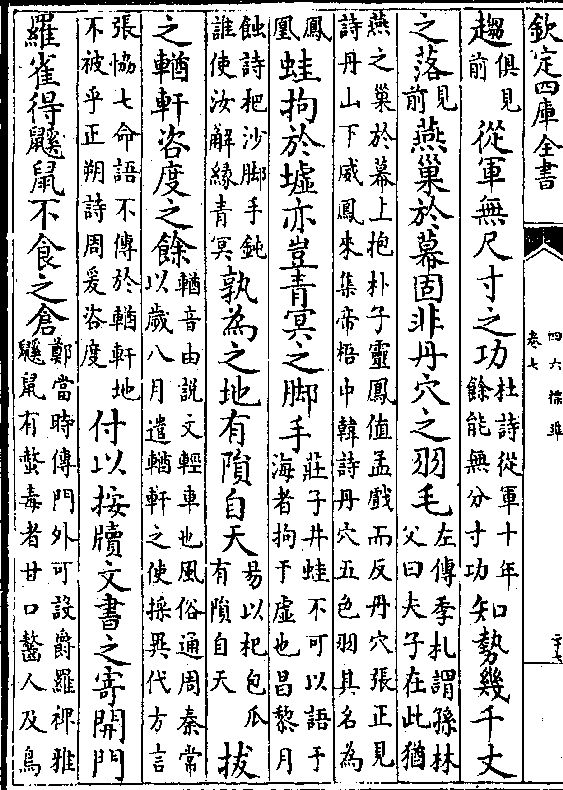 欽定四庫全書
四六標準
卷七
趨俱見前從軍無尺寸之功杜詩從軍十年餘能無分寸功知勢幾千丈
之落見前燕巢於幕固非丹穴之羽毛左傳季札謂孫林父曰夫子在此猶
燕之巢於幕上抱朴子靈鳳值孟戲而反丹穴張正見
詩丹山下威鳳來集帝梧中韓詩丹穴五色羽其名為
鳳凰蛙拘於墟亦豈青冥之脚手莊子井蛙不可以語于海者拘于虛也昌黎月
蝕詩杷沙脚手鈍誰使汝解緣青冥孰為之地有隕自天易以杞包瓜有隕自天拔
之輶軒咨度之餘輶音由說文輕車也風俗通周秦常以歲八月遣輶軒之使採異代方言
張恊七命語不傳於輶軒地不被乎正朔詩周爰咨度付以按牘文書之寄開門
羅雀得鼷鼠不食之倉鄭當時傳門外可設爵羅禆雅鼷鼠有螫毒者甘口齧人及鳥